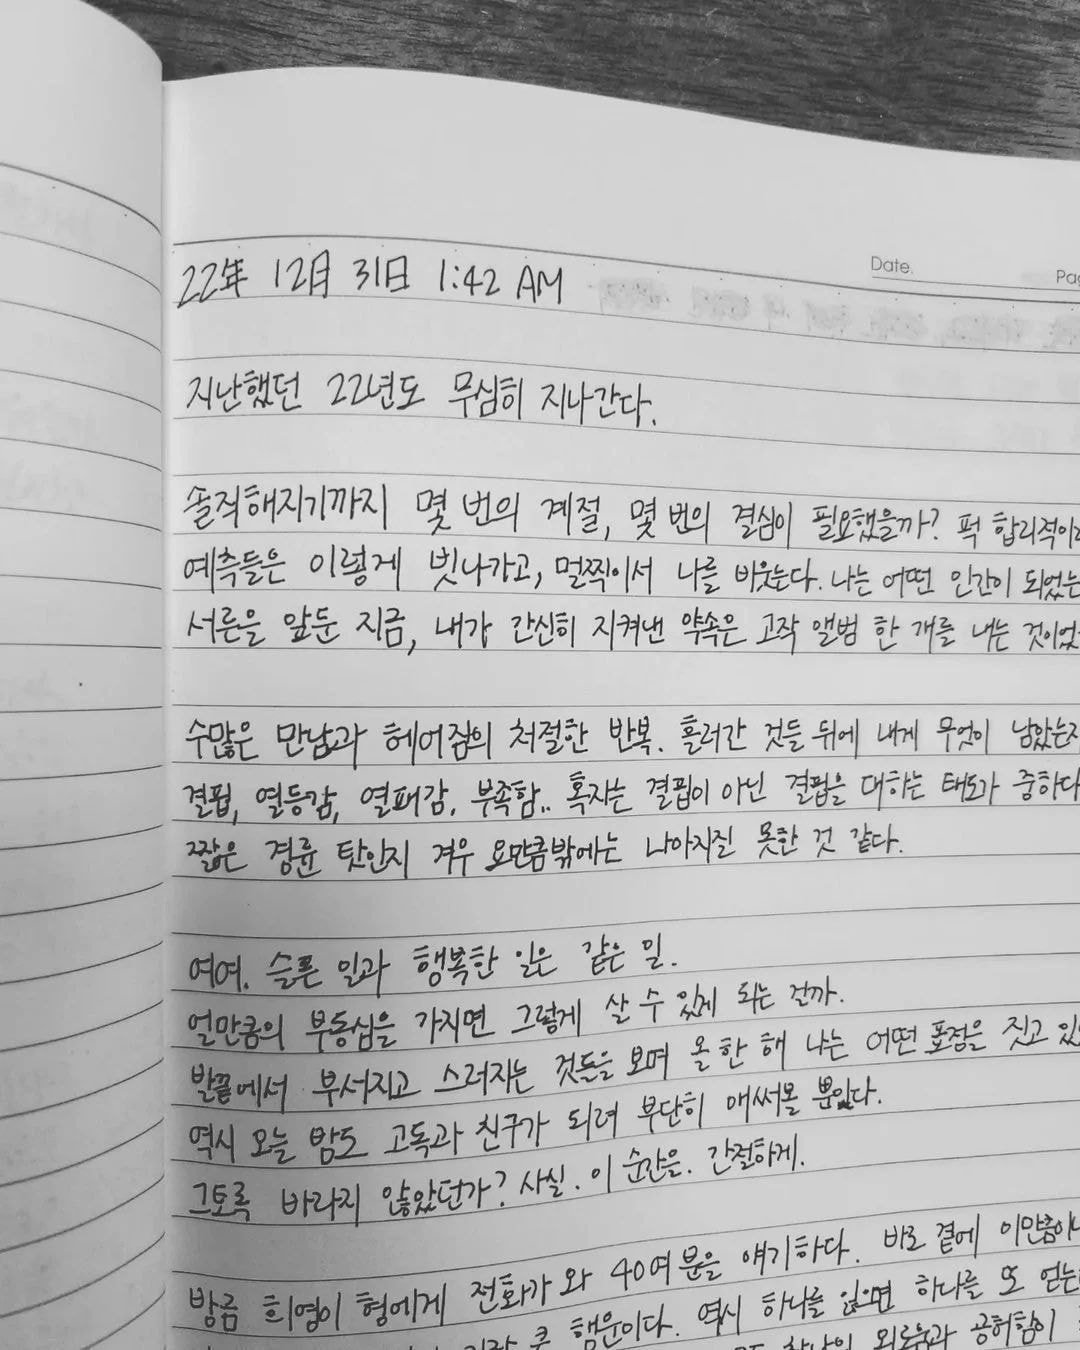 Date.
22年 12月 31日 1:42 AM
지난했던 22년도 무심히 지나간다.
솔직해지기까지 몇 번의 계절, 몇 번의 결심이 필요했을까? 퍽 합리적이라
예측들은 이렇게 빗나가고, 멀찍이서 나를 비웃는다. 나는 어떤 인간이 되었는
서른을 앞둔 지금, 내가 간신히 지켜낸 약속은 고작 앨범 한 개를 내는 것이었
수많은 만남과 헤어짐의 처절한 반복. 흘러간 것들 뒤에 내게 무엇이 남았는지
결핍, 열등감, 열패감, 부족함.. 혹자는 결핍이 아닌 결핍을 대하는 태도가 중하다
짧은 경륜 탓인지 겨우 요만큼밖에는 나아지질 못한 것 같다.
여여. 슬픈 일과 행복한 일은 같은 일.
얼만큼의 부동심을 가지면 그렇게 살 수 있게 되는 걸까.
발끝에서 부서지고 스러지는 것들을 보며 올 한 해 나는 어떤 표정을 짓고 있
역시 오늘 밤도 고독과 친구가 되려 부단히 애써볼 뿐이다.
그토록 바라지 않았던가? 사실. 이 순간을. 간절하게.
방금 희영이 형에게 전화가 와 40여분을 얘기하다. 바로 곁에 이만큼이나
큰 행운이다. 역시 하나를 잃으면 하나를 또 얻는
외로움과 공허함이